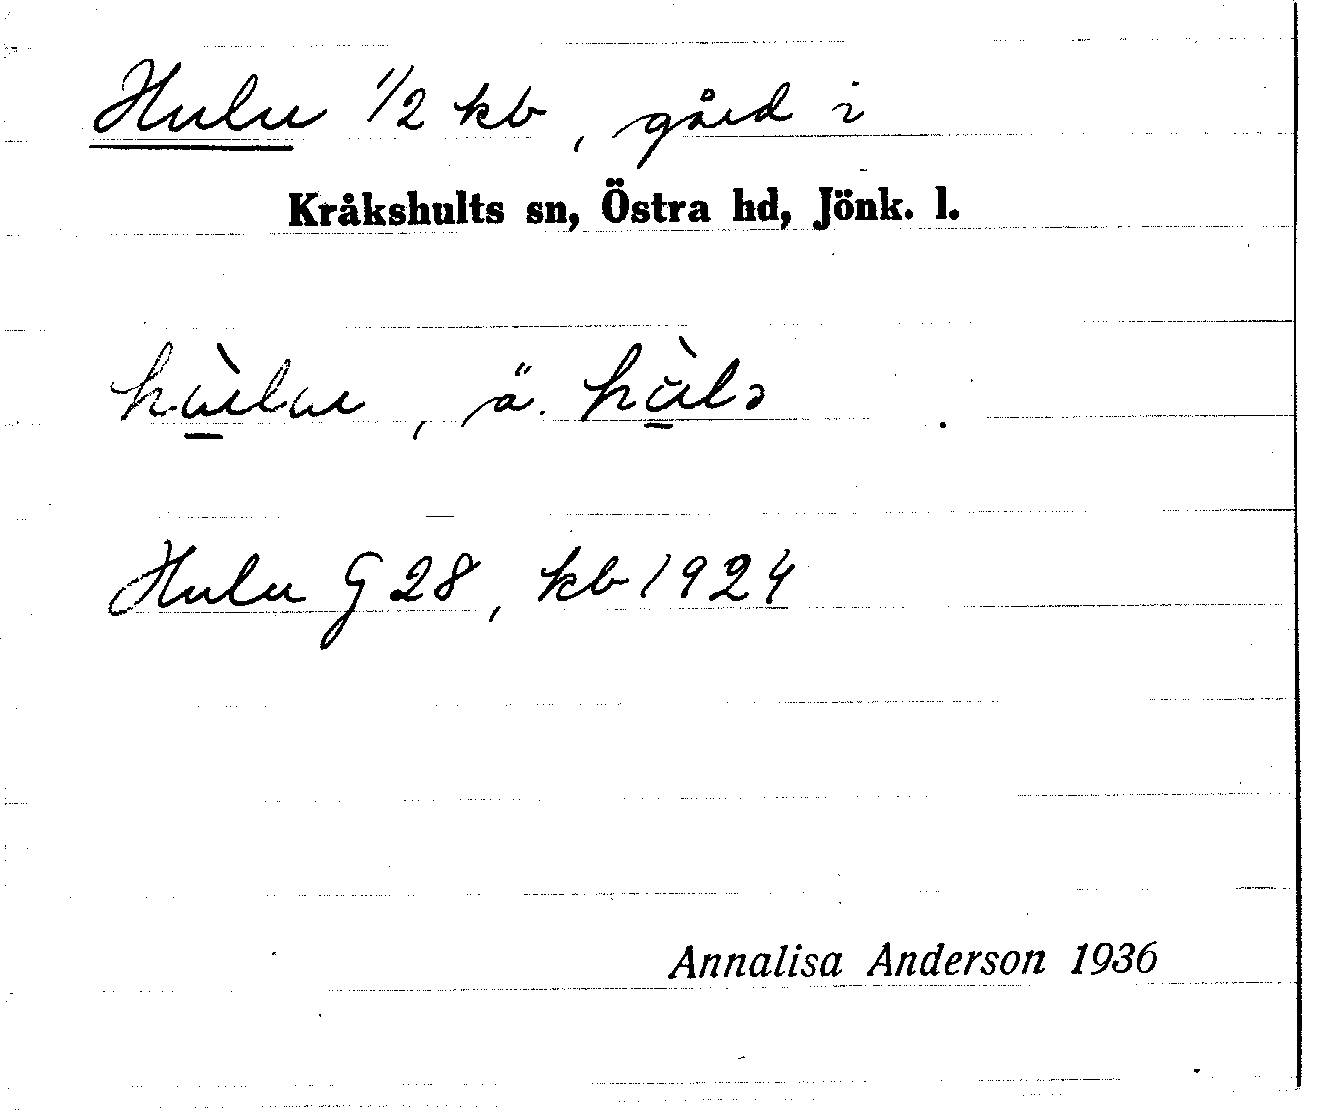 Hulu 1/2 kb, gård i
Kråkshults sn, Östra hd, Jönk. l.
hùlu, ä. hùlə
Hulu G 28, kb 1924
Annalisa Anderson 1936